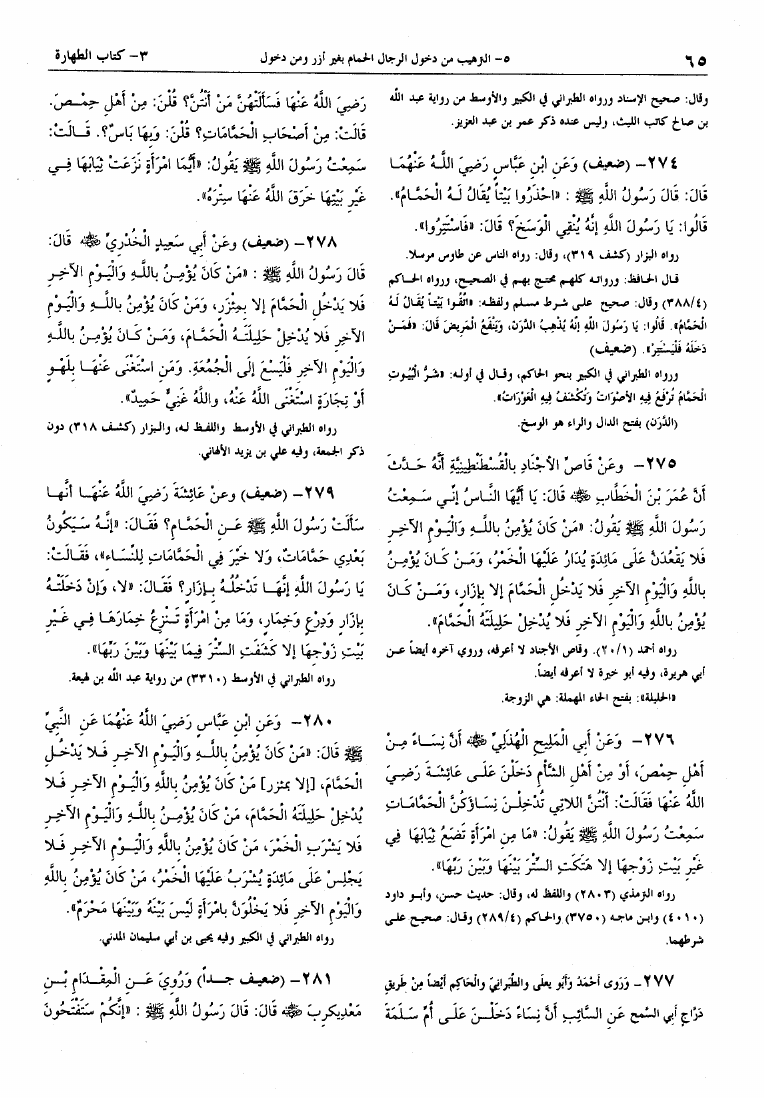 ٦٥
٥- الترهيب من دخول الرجال الحمام بغير أزر ومن دخول
٣- كتاب الطهارة
وقال: صحيح الإسناد ورواه الطبراني في الكبير والأوسط من رواية عبد الله
بن صالح كاتب الليث، وليس عنده ذكر عمر بن عبد العزيز.
٢٧٤- (ضعيف) وَعَنِ ابْنِ عَبَّاسٍ رَضِيَ اللهُ عَنْهُمَا
قَالَ: قَالَ رَسُولُ اللهِ ﷺ : «احْذَرُوا بَيْتاً يُقَالُ لَهُ الْحَمَّامُ».
قَالُوا: يَا رَسُولَ اللهِ إِنَّهُ يُنْقِي الْوَسَخَ؟ قَالَ: «فَاسْتَتِرُوا».
رواه البزار (كشف ٣١٩)، وقال: رواه الناس عن طاوس مرسلا.
قال الحافظ: ورواته كلهم محتج بهم في الصحيح، ورواه الحاكم
(٣٨٨/٤) وقال: صحيح على شرط مسلم ولفظه: «اتَّقُوا بَيْتاً يُقَالُ لَهُ
الْحَمَّامُ». قَالُوا: يَا رَسُولَ اللهِ إِنَّهُ يُذْهِبُ الدَّرَنَ، وَيَنْفَعُ الْمَرِيضَ قَالَ: «فَمَنْ
دَخَلَهُ فَلْيَسْتَتِرْ». (ضعيف)
ورواه الطبراني في الكبير بنحو الحاكم، وقال في أوله: «شَرُّ الْبُيُوتِ
الْحَمَّامُ تُرْفَعُ فِيهِ الأَصْوَاتُ وَتُكْشَفُ فِيهِ الْعَوْرَاتُ».
(الدَّرَن) بفتح الدال والراء هو الوسخ.
٢٧٥- وَعَنْ قَاصِّ الأَجْنَادِ بِالْقُسْطَنْطِينِيَّةِ أَنَّهُ حَدَّثَ
أَنَّ عُمَرَ بْنَ الْخَطَّابِ ﷺ قَالَ: يَا أَيُّهَا النَّاسُ إِنِّي سَمِعْتُ
رَسُولَ اللهِ ﷺ يَقُولُ: «مَنْ كَانَ يُؤْمِنُ بِاللهِ وَالْيَوْمِ الآخِرِ
فَلا يَقْعُدَنَّ عَلَى مَائِدَةٍ يُدَارُ عَلَيْهَا الْخَمْرُ، وَمَنْ كَانَ يُؤْمِنُ
بِاللهِ وَالْيَوْمِ الآخِرِ فَلا يَدْخُلِ الْحَمَّامَ إِلا بِإِزَارٍ، وَمَنْ كَانَ
يُؤْمِنُ بِاللهِ وَالْيَوْمِ الآخِرِ فَلا يُدْخِلْ حَلِيلَتَهُ الْحَمَّامَ».
رواه أحمد (٢٠/١). وقاص الأجناد لا أعرفه، وروي آخره أيضاً عن
أبي هريرة، وفيه أبو خيرة لا أعرفه أيضاً.
«الحليلة»: بفتح الحاء المهملة: هي الزوجة.
٢٧٦- وَعَنْ أَبِي الْمَلِيحِ الْهُذَلِيِّ ﷺ أَنَّ نِسَاءً مِنْ
أَهْلِ حِمْصَ، أَوْ مِنْ أَهْلِ الشَّأْمِ دَخَلْنَ عَلَى عَائِشَةَ رَضِيَ
اللهُ عَنْهَا فَقَالَتْ: أَنْتُنَّ اللاتِي تُدْخِلْنَ نِسَاؤُكُنَّ الْحَمَّامَاتِ
سَمِعْتُ رَسُولَ اللهِ ﷺ يَقُولُ: «مَا مِنِ امْرَأَةٍ تَضَعُ ثِيَابَهَا فِي
غَيْرِ بَيْتِ زَوْجِهَا إِلا هَتَكَتِ السِّتْرَ بَيْنَهَا وَبَيْنَ رَبِّهَا».
رواه الترمذي (٢٨٠٣) واللفظ له، وقال: حديث حسن، وأبو داود
(٤٠١٠) وابن ماجه (٣٧٥٠) والحاكم (٢٨٩/٤) وقال: صحيح على
شرطهما.
٢٧٧- وَرَوَى أَحْمَدُ وَأَبُو يعلى والطَّبَرَانيّ والْحَاكِم أَيْضاً مِنْ طَرِيقِ
دَرَّاجٍ أبي السَّمح عَنِ السَّائِبِ أَنَّ نِسَاءً دَخَلْنَ عَلَى أُمِّ سَلَمَةَ
رَضِيَ اللهُ عَنْهَا فَسَأَلَتْهُنَّ مَنْ أَنْتُنَّ؟ قُلْنَ: مِنْ أَهْلِ حِمْصَ.
قَالَتْ: مِنْ أَصْحَابِ الْحَمَّامَاتِ؟ قُلْنَ: وَبِهَا بَاسٌ؟. قَالَتْ:
سَمِعْتُ رَسُولَ اللهِ ﷺ يَقُولُ: «أَيُّمَا امْرَأَةٍ نَزَعَتْ ثِيَابَهَا فِي
غَيْرِ بَيْتِهَا خَرَقَ اللهُ عَنْهَا سِتْرَهُ».
٢٧٨- (ضعيف) وعَنْ أَبِي سَعِيدٍ الْخُدْرِيِّ ﷺ قَالَ:
قَالَ رَسُولُ اللهِ ﷺ : «مَنْ كَانَ يُؤْمِنُ بِاللهِ وَالْيَوْمِ الآخِرِ
فَلا يَدْخُلِ الْحَمَّامَ إِلا بِمِئْزَرٍ، وَمَنْ كَانَ يُؤْمِنُ بِاللهِ وَالْيَوْمِ
الآخِرِ فَلا يُدْخِلْ حَلِيلَتَهُ الْحَمَّامَ، وَمَنْ كَانَ يُؤْمِنُ بِاللهِ
وَالْيَوْمِ الآخِرِ فَلْيَسْعَ إِلَى الْجُمُعَةِ. وَمَنِ اسْتَغْنَى عَنْهَا بِلَهْوٍ
أَوْ تِجَارَةٍ اسْتَغْنَى اللهُ عَنْهُ، واللهُ غَنِيٌّ حَمِيدٌ».
رواه الطبراني في الأوسط واللفظ له، والبزار (كشف ٣١٨) دون
ذكر الجمعة، وفيه علي بن يزيد الألهاني.
٢٧٩- (ضعيف) وعنْ عَائِشَةَ رَضِيَ اللهُ عَنْهَا أنَّها
سَأَلَتْ رَسُولَ اللهِ ﷺ عَنِ الْحَمَّامِ؟ فَقَالَ: «إِنَّهُ سَيَكُونُ
بَعْدِي حَمَّامَاتٌ، وَلا خَيْرَ فِي الْحَمَّامَاتِ لِلنِّسَاءِ»، فَقَالَتْ:
يَا رَسُولَ اللهِ إِنَّهَا تَدْخُلُهُ بِإِزَارٍ؟ فَقَالَ: «لا، وَإِنْ دَخَلَتْهُ
بِإِزَارٍ وَدِرْعٍ وَخِمَارٍ، وَمَا مِنِ امْرَأَةٍ تَنْزِعُ خِمَارَهَا فِي غَيْرِ
بَيْتِ زَوْجِهَا إِلا كَشَفَتِ السِّتْرَ فِيمَا بَيْنَهَا وَبَيْنَ رَبِّهَا».
رواه الطبراني في الأوسط (٣٣١٠) من رواية عبد الله بن لهيعة.
٢٨٠- وَعَنِ ابْنِ عَبَّاسٍ رَضِيَ اللهُ عَنْهُمَا عَنِ النَّبِيِّ
ﷺ قَالَ: «مَنْ كَانَ يُؤْمِنُ بِاللهِ وَالْيَوْمِ الآخِرِ فَلا يَدْخُلِ
الْحَمَّامَ، [إلا بمئزر] مَنْ كَانَ يُؤْمِنُ بِاللهِ وَالْيَوْمِ الآخِرِ فَلا
يُدْخِلْ حَلِيلَتَهُ الْحَمَّامَ، مَنْ كَانَ يُؤْمِنُ بِاللهِ وَالْيَوْمِ الآخِرِ
فَلا يَشْرَبِ الْخَمْرَ، مَنْ كَانَ يُؤْمِنُ بِاللهِ وَالْيَوْمِ الآخِرِ فَلا
يَجْلِسْ عَلَى مَائِدَةٍ يُشْرَبُ عَلَيْهَا الْخَمْرُ، مَنْ كَانَ يُؤْمِنُ بِاللهِ
وَالْيَوْمِ الآخِرِ فَلا يَخْلُوَنَّ بِامْرَأَةٍ لَيْسَ بَيْنَهُ وَبَيْنَهَا مَحْرَمٌ».
رواه الطبراني في الكبير وفيه يحيى بن أبي سليمان المدني.
٢٨١- (ضعيف جداً) وَرُوِيَ عَنِ الْمِقْدَامِ بْنِ
مَعْدِيكَرِبَ ﷺ قَالَ: قَالَ رَسُولُ اللهِ ﷺ : «إِنَّكُمْ سَتَفْتَحُونَ